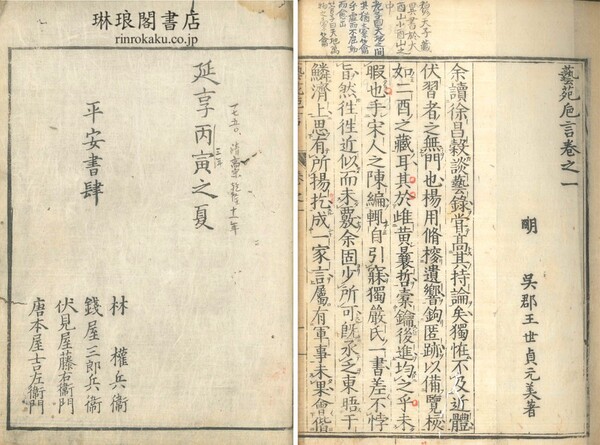 藝苑巵言卷之一
明　吳郡王世貞元美著
余讀徐昌榖談藝錄甞高其持論矣獨恠不及近體
伏習者之無門也揚用脩搜遺響鉤匿跡以備覽核
如二酉之藏耳其於雌黃曩哲橐鑰後進均之乎未
暇也手宋人之陳編輒自引寐獨嚴氏一書差不悖
旨然徃徃近似而未覈余固少所可旣承乏東晤于
鱗濟上思有所揚扢成一家言屬有軍事未果會偕
琳琅閣書店
rinrokaku.co.jp
延享丙寅之夏
三年
平安書肆
林　權兵衞
錢屋三郎兵衞
伏見屋藤右衞門
唐本屋吉左衞門